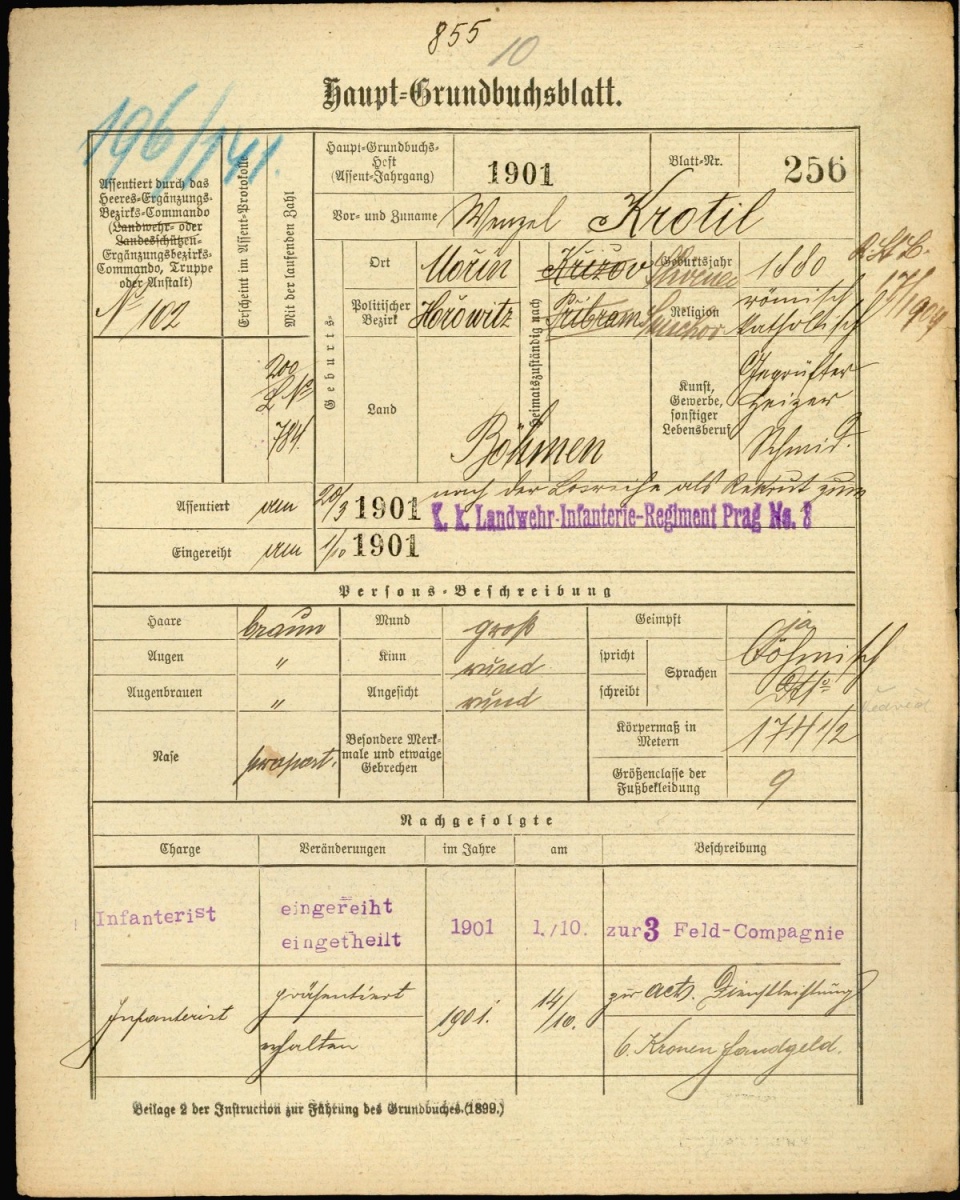 855
10
Haupt-Grundbuchsblatt.
196/141.
Assentiert durch das
Heeres-Ergänzungs-
Bezirks-Commando
(Landwehr- oder
Landesschützen-
Ergänzungsbezirks-
Commando, Truppe
oder Anstalt)
No 102
Erscheint im Assent-Protokolle
Mit der laufenden Zahl
200
L No
784.
Haupt-Grundbuchs-
Heft
(Assent-Jahrgang)
1901
Blatt-Nr.
256
Vor- und Zuname
Wenzel Krotil
Geburts-
Ort
Mořin
Politischer
Bezirk
Hořowitz
Land
Böhmen
Heimatszuständig nach
Křižov
Přibram
Smichov
Geburtsjahr
1880
Religion
römisch
katholisch
17/1904
Kunst,
Gewerbe,
sonstiger
Lebensberuf
Geprüfter
Heizer
Schmid.
Assentiert den 20/3 1901 nach der Losreihe als Rekrut zum
K. k. Landwehr-Infanterie-Regiment Prag No. 8
Eingereiht den 1/10 1901
Persons-Beschreibung
Haare braun
Augen "
Augenbrauen "
Nase proport.
Mund groß
Kinn rund
Angesicht rund
Besondere Merk-
male und etwaige
Gebrechen
Geimpft ja
spricht
schreibt
Sprachen
böhmisch
dtto
Körpermaß in
Metern
174 1/2
Größenclasse der
Fußbekleidung
9
Nachgefolgte
Charge Veränderungen im Jahre am Beschreibung
Infanterist eingereiht
eingetheilt 1901 1./10. zur 3 Feld-Compagnie
Infanterist präsentiert 1901. 14/10. zur act. Dienstleistung
erhalten 6. Kronen Handgeld.
Beilage 2 der Instruction zur Führung des Grundbuches (1899.)